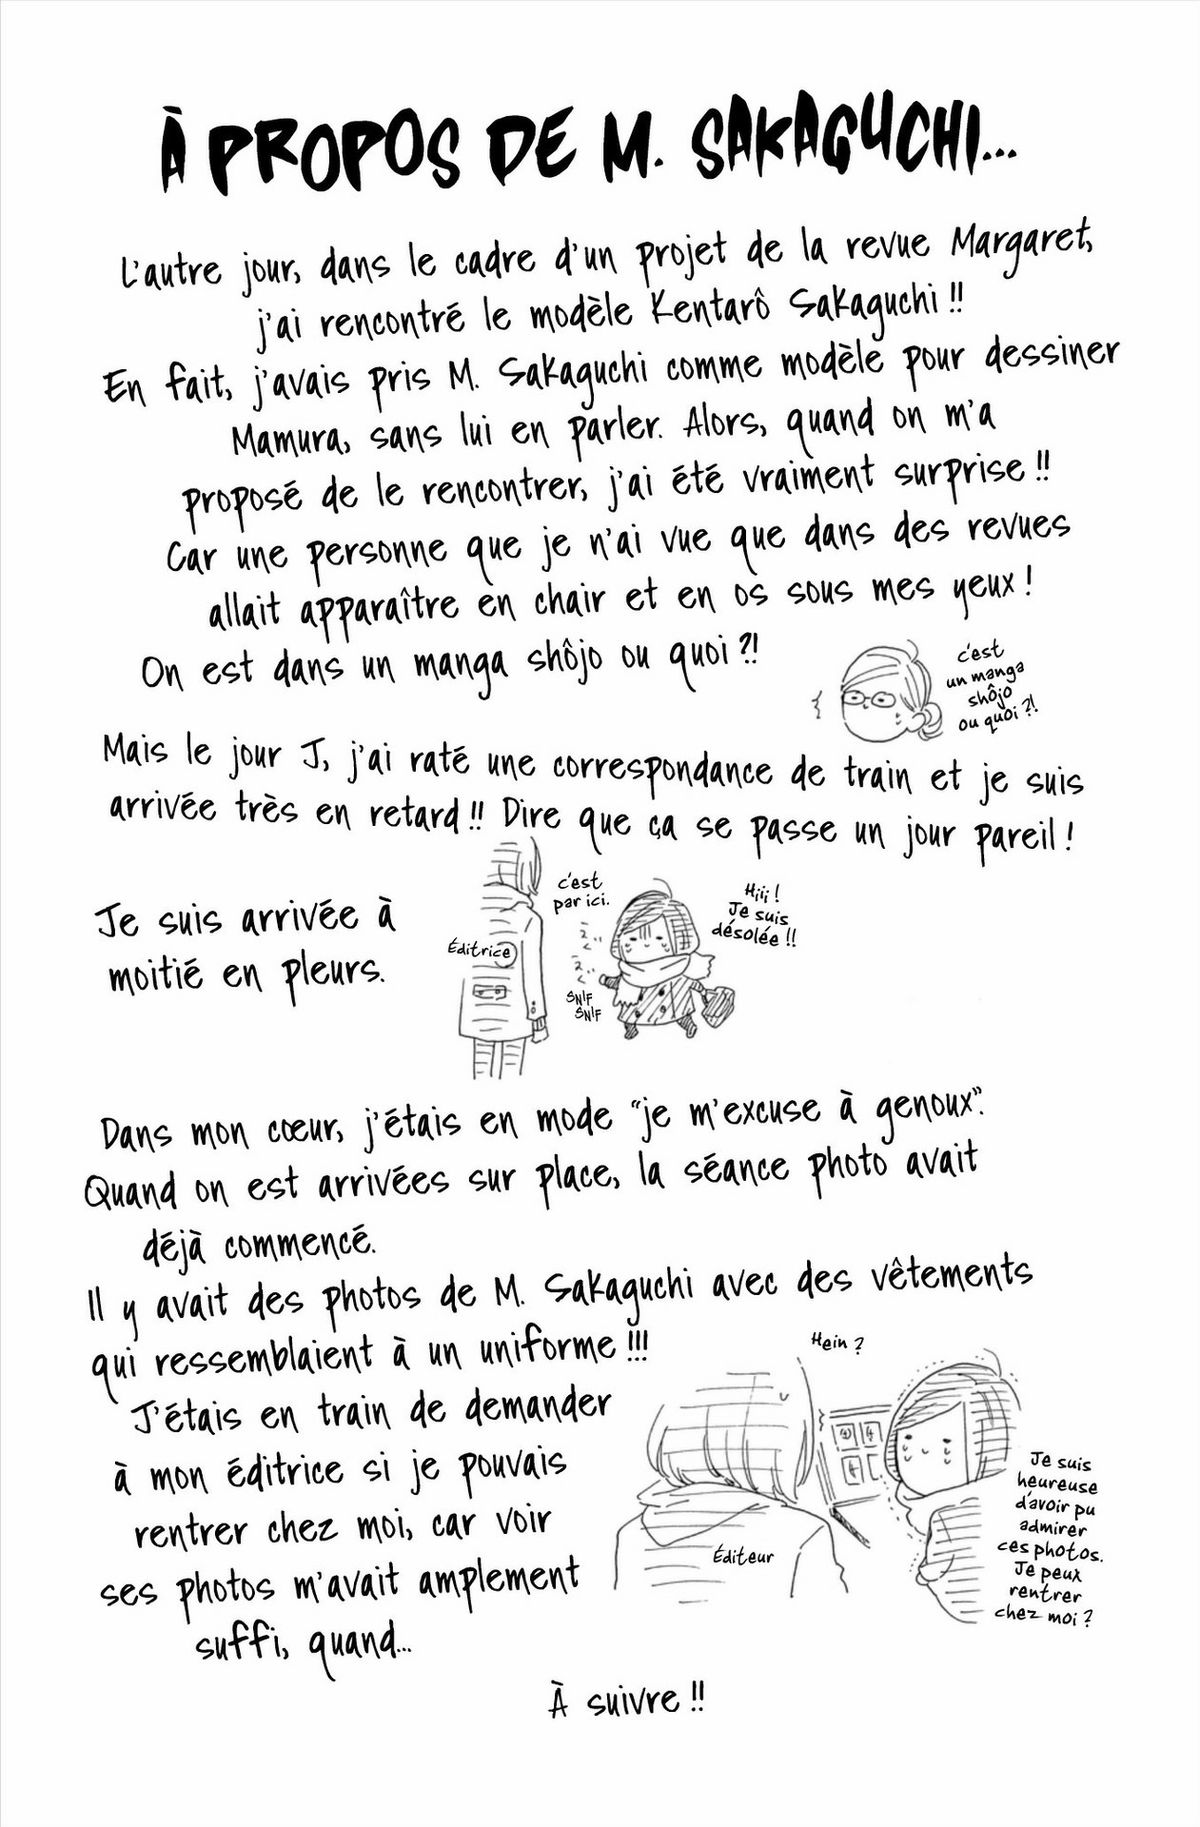 À PROPOS DE M. SAKAGUCHI...
L'autre jour, dans le cadre d'un projet de la revue Margaret,
j'ai rencontré le modèle Kentarô Sakaguchi !!
En fait, j'avais pris M. Sakaguchi comme modèle pour dessiner
Mamura, sans lui en parler. Alors, quand on m'a
proposé de le rencontrer, j'ai été vraiment surprise !!
Car une personne que je n'ai vue que dans des revues
allait apparaître en chair et en os sous mes yeux !
On est dans un manga shôjo ou quoi ?!
c'est
un manga
shôjo
ou quoi ?!
Mais le jour J, j'ai raté une correspondance de train et je suis
arrivée très en retard !! Dire que ça se passe un jour pareil !
Je suis arrivée à
moitié en pleurs.
Éditrice
c'est
par ici.
SNIF
SNIF
Hiii !
Je suis
désolée !!
Dans mon cœur, j'étais en mode "je m'excuse à genoux".
Quand on est arrivées sur place, la séance photo avait
déjà commencé.
Il y avait des photos de M. Sakaguchi avec des vêtements
qui ressemblaient à un uniforme !!!
J'étais en train de demander
à mon éditrice si je pouvais
rentrer chez moi, car voir
ses photos m'avait amplement
suffi, quand...
Hein ?
Éditeur
Je suis
heureuse
d'avoir pu
admirer
ces photos.
Je peux
rentrer
chez moi ?
À suivre !!